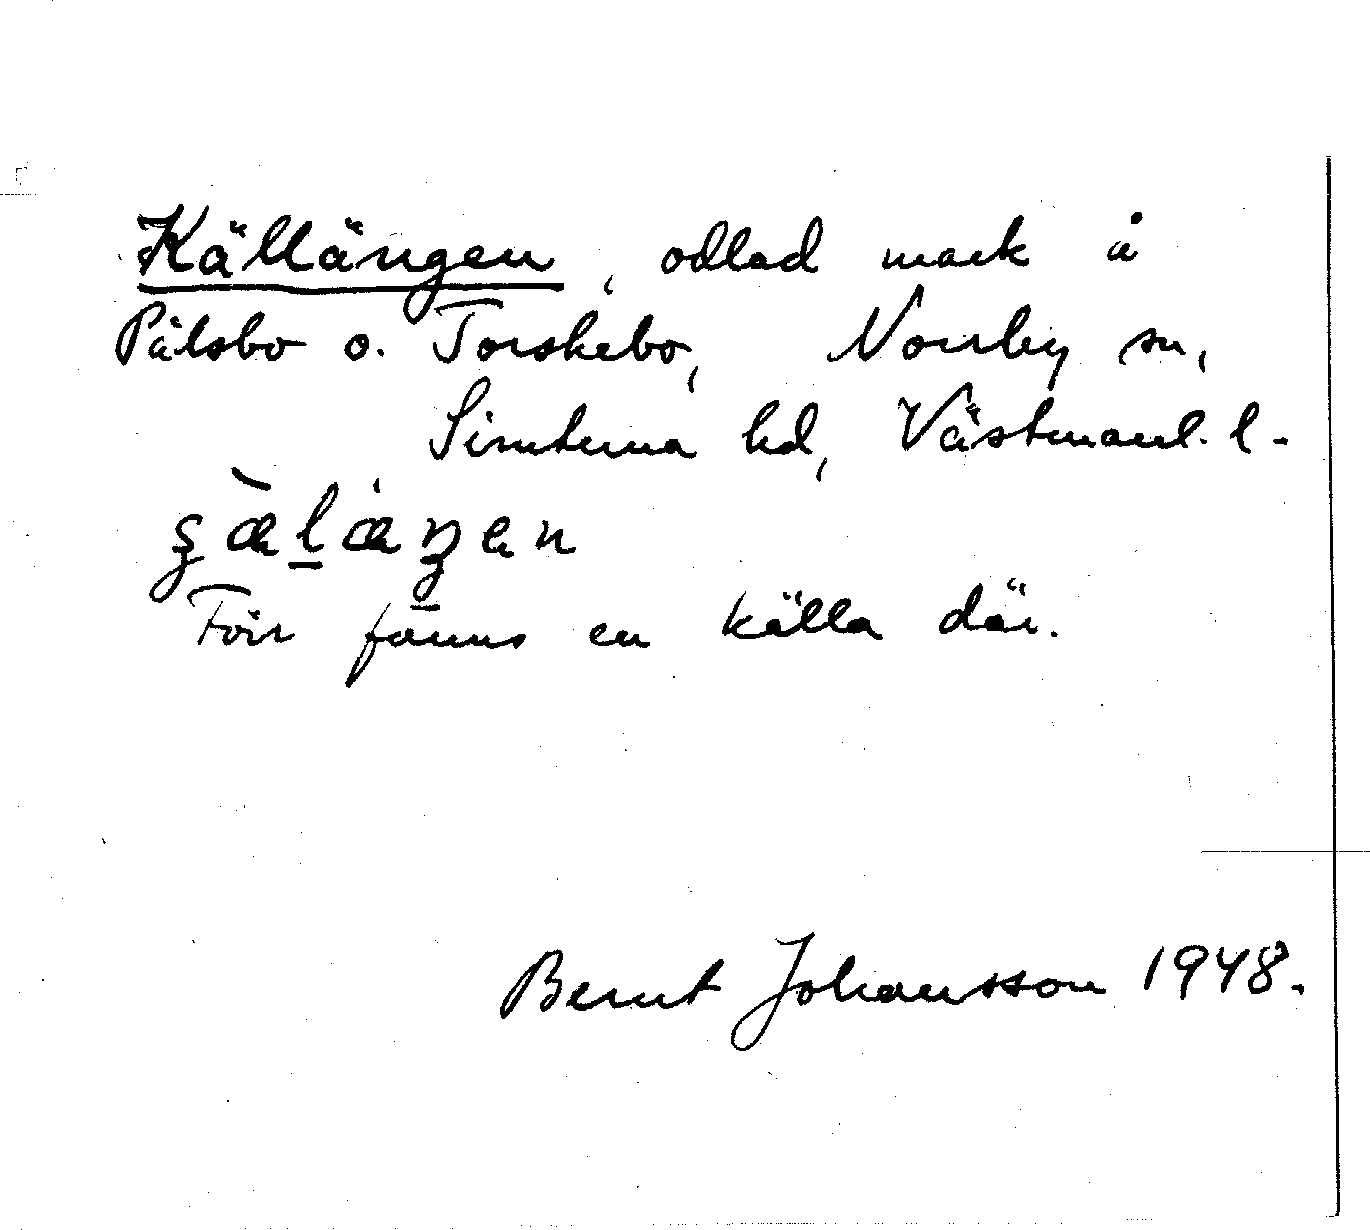 Källängen, odlad mark å
Pålsbo o. Torskebo, Norrby sn,
Simtuna hd, Västmanl. l.
Förr fanns en källa där.
Bernt Johansson 1948.